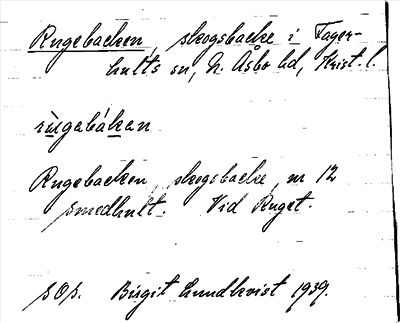 Rugebacken, skogsbacke i Fager-
hults sn, N. Åsbo hd, Krist. l.
rùgabákan
Rugebacken, skogsbacke, nr 12
Smedhult. Vid Ruget.
SOS. Birgit Lundkvist 1939.